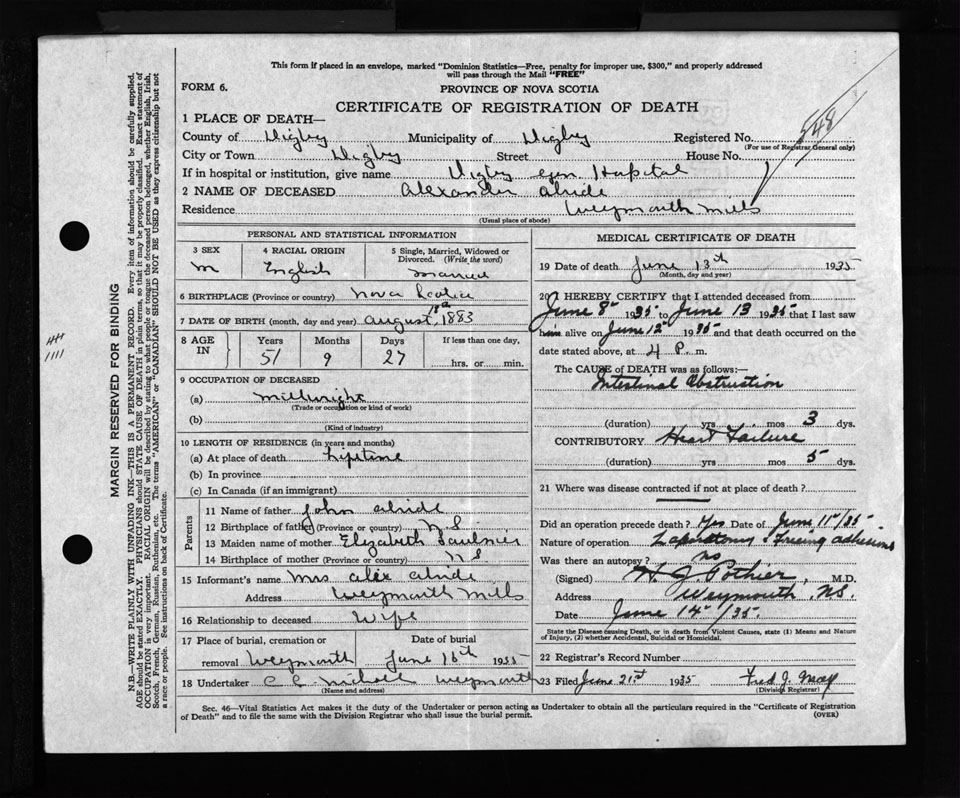 This form if placed in an envelope, marked "Dominion Statistics—Free, penalty for improper use, $300," and properly addressed
will pass through the Mail "FREE"
FORM 6.
PROVINCE OF NOVA SCOTIA
CERTIFICATE OF REGISTRATION OF DEATH
548
1 PLACE OF DEATH—
County of Digby Municipality of Digby Registered No.
(For use of Registrar General only)
City or Town Digby Street House No.
If in hospital or institution, give name Digby Gen Hospital
2 NAME OF DECEASED Alexander
Residence Weymouth Mills
(Usual place of abode)
PERSONAL AND STATISTICAL INFORMATION
3 SEX 4 RACIAL ORIGIN 5 Single, Married, Widowed or Divorced. (Write the word)
M English Married
6 BIRTHPLACE (Province or country) Nova Scotia
7 DATE OF BIRTH (month, day and year) August 1883
8 AGE IN Years Months Days If less than one day,
51 9 27 hrs. or min.
9 OCCUPATION OF DECEASED
(a) Millwright
(Trade or occupation or kind of work)
(b)
(Kind of industry)
10 LENGTH OF RESIDENCE (in years and months)
(a) At place of death Lifetime
(b) In province
(c) In Canada (if an immigrant)
Parents
11 Name of father John
12 Birthplace of father (Province or country) N S
13 Maiden name of mother Elizabeth Saulnier
14 Birthplace of mother (Province or country) N S
15 Informant's name Mrs Alex
Address Weymouth Mills
16 Relationship to deceased Wife
17 Place of burial, cremation or Date of burial
removal Weymouth June 16th 1935
18 Undertaker C C Weymouth
(Name and address)
MEDICAL CERTIFICATE OF DEATH
19 Date of death June 13th 1935
(Month, day and year)
20 I HEREBY CERTIFY that I attended deceased from
June 8th 1935 to June 13 1935 that I last saw
him alive on June 12th 1935 and that death occurred on the
date stated above, at 4 P. m.
The CAUSE of DEATH was as follows:—
Intestinal Obstruction
(duration) yrs. mos 3 dys.
CONTRIBUTORY Heart Failure
(duration) yrs mos 5 dys.
21 Where was disease contracted if not at place of death?
Did an operation precede death? Yes Date of June 11th/35
Nature of operation Laparotomy & Freeing adhesions
Was there an autopsy? no
(Signed) H J Pothier, M.D.
Address Weymouth, NS.
Date June 14th/35.
State the Disease causing Death, or in death from Violent Causes, state (1) Means and Nature
of Injury, (2) whether Accidental, Suicidal or Homicidal.
22 Registrar's Record Number
23 Filed June 21st 1935 Fred J.
(Division Registrar)
Sec. 46—Vital Statistics Act makes it the duty of the Undertaker or person acting as Undertaker to obtain all the particulars required in the "Certificate of Registration
of Death" and to file the same with the Division Registrar who shall issue the burial permit.
(OVER)
MARGIN RESERVED FOR BINDING
N.B.—WRITE PLAINLY WITH UNFADING INK—THIS IS A PERMANENT RECORD. Every item of information should be carefully supplied.
AGE should be stated EXACTLY. PHYSICIANS should STATE CAUSE OF DEATH in plain terms, so that it may be properly classified. Exact statement of
OCCUPATION is very important. RACIAL ORIGIN will be described by stating to what people or tongue the deceased person belonged, whether English, Irish,
Scotch, French, German, Russian, Ruthenian, etc. The terms "AMERICAN" or "CANADIAN" SHOULD NOT BE USED as they express citizenship but not
a race or people. See instructions on back of Certificate.